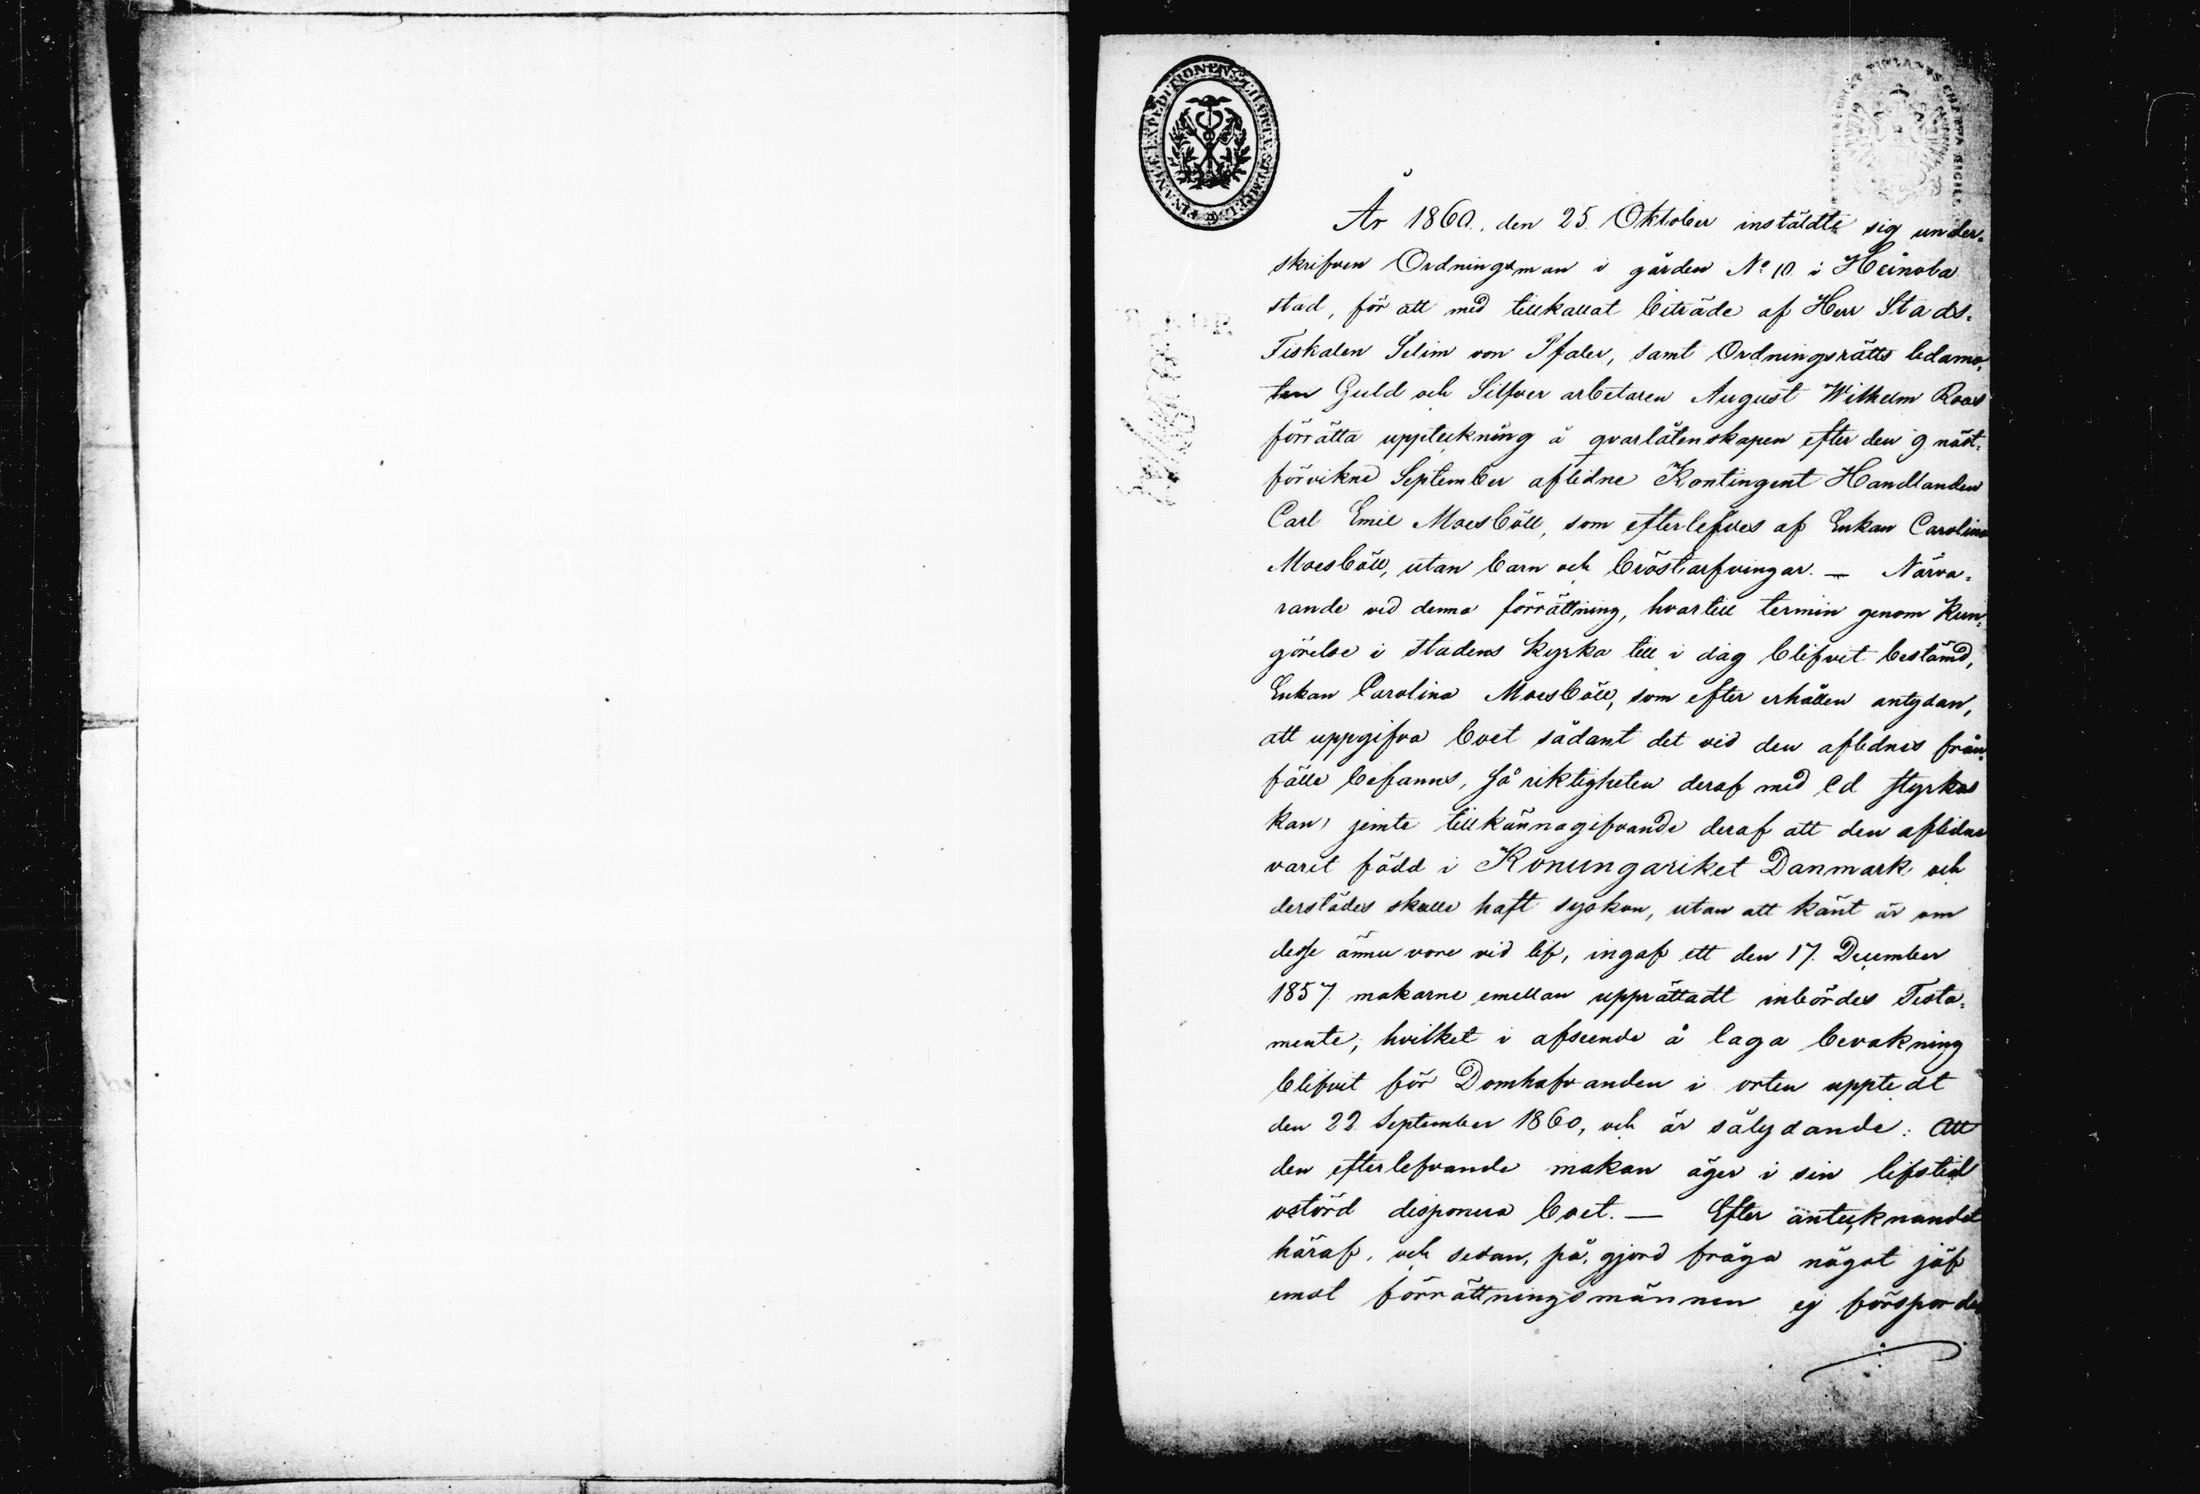 FINANCE EXPEDITIONENS CHARTÆ STEMPEL
År 1860. den 25. Oktober instäldte sig under=
skrifven Ordningsman i gården No 10 i Heinola
stad, för att med tillkallat biträde af Herr Stads=
Fiskalen Selim von Pfaler, samt Ordningsrätts ledamo=
ten Guld och Silfver arbetaren August Wilhelm Roos
förrätta uppteckning å qvarlåtenskapen efter den 9 näst=
förvikne September aflidne Kontingent Handlanden
Carl Emil Moesböll, som efterlefves af Enkan Carolina
Moesböll, utan barn och bröstarfvingar. — Närva=
rande vid denna förrättning, hvartill termin genom Kun=
görelse i stadens Kyrka till i dag blifvit bestämd,
Enkan Carolina Moesböll, som efter erhållen antydan,
att uppgifva boet sådant det vid den aflidnes från=
fälle befanns, så riktigheten deraf med Ed styrkas
kan, jemte tillkännagifvande deraf att den aflidne
varit född i Konungariket Danmark och
derstädes skulle haft syskon, utan att känt är om
desse ännu vore vid lif, ingaf ett den 17. December
1857 makarne emellan upprättadt inbördes Testa=
mente, hvilket i afseende å laga bevakning
blifvit för Domhafvanden i orten uppte dt
den 22 September 1860, och är sålydande: Att
den efterlefvande makan äger i sin lifstid
ostörd disponera boet. — Efter antecknandet
häraf, och sedan, på, gjord fråga något jäf
emot förrättningsmännen ej förspordes